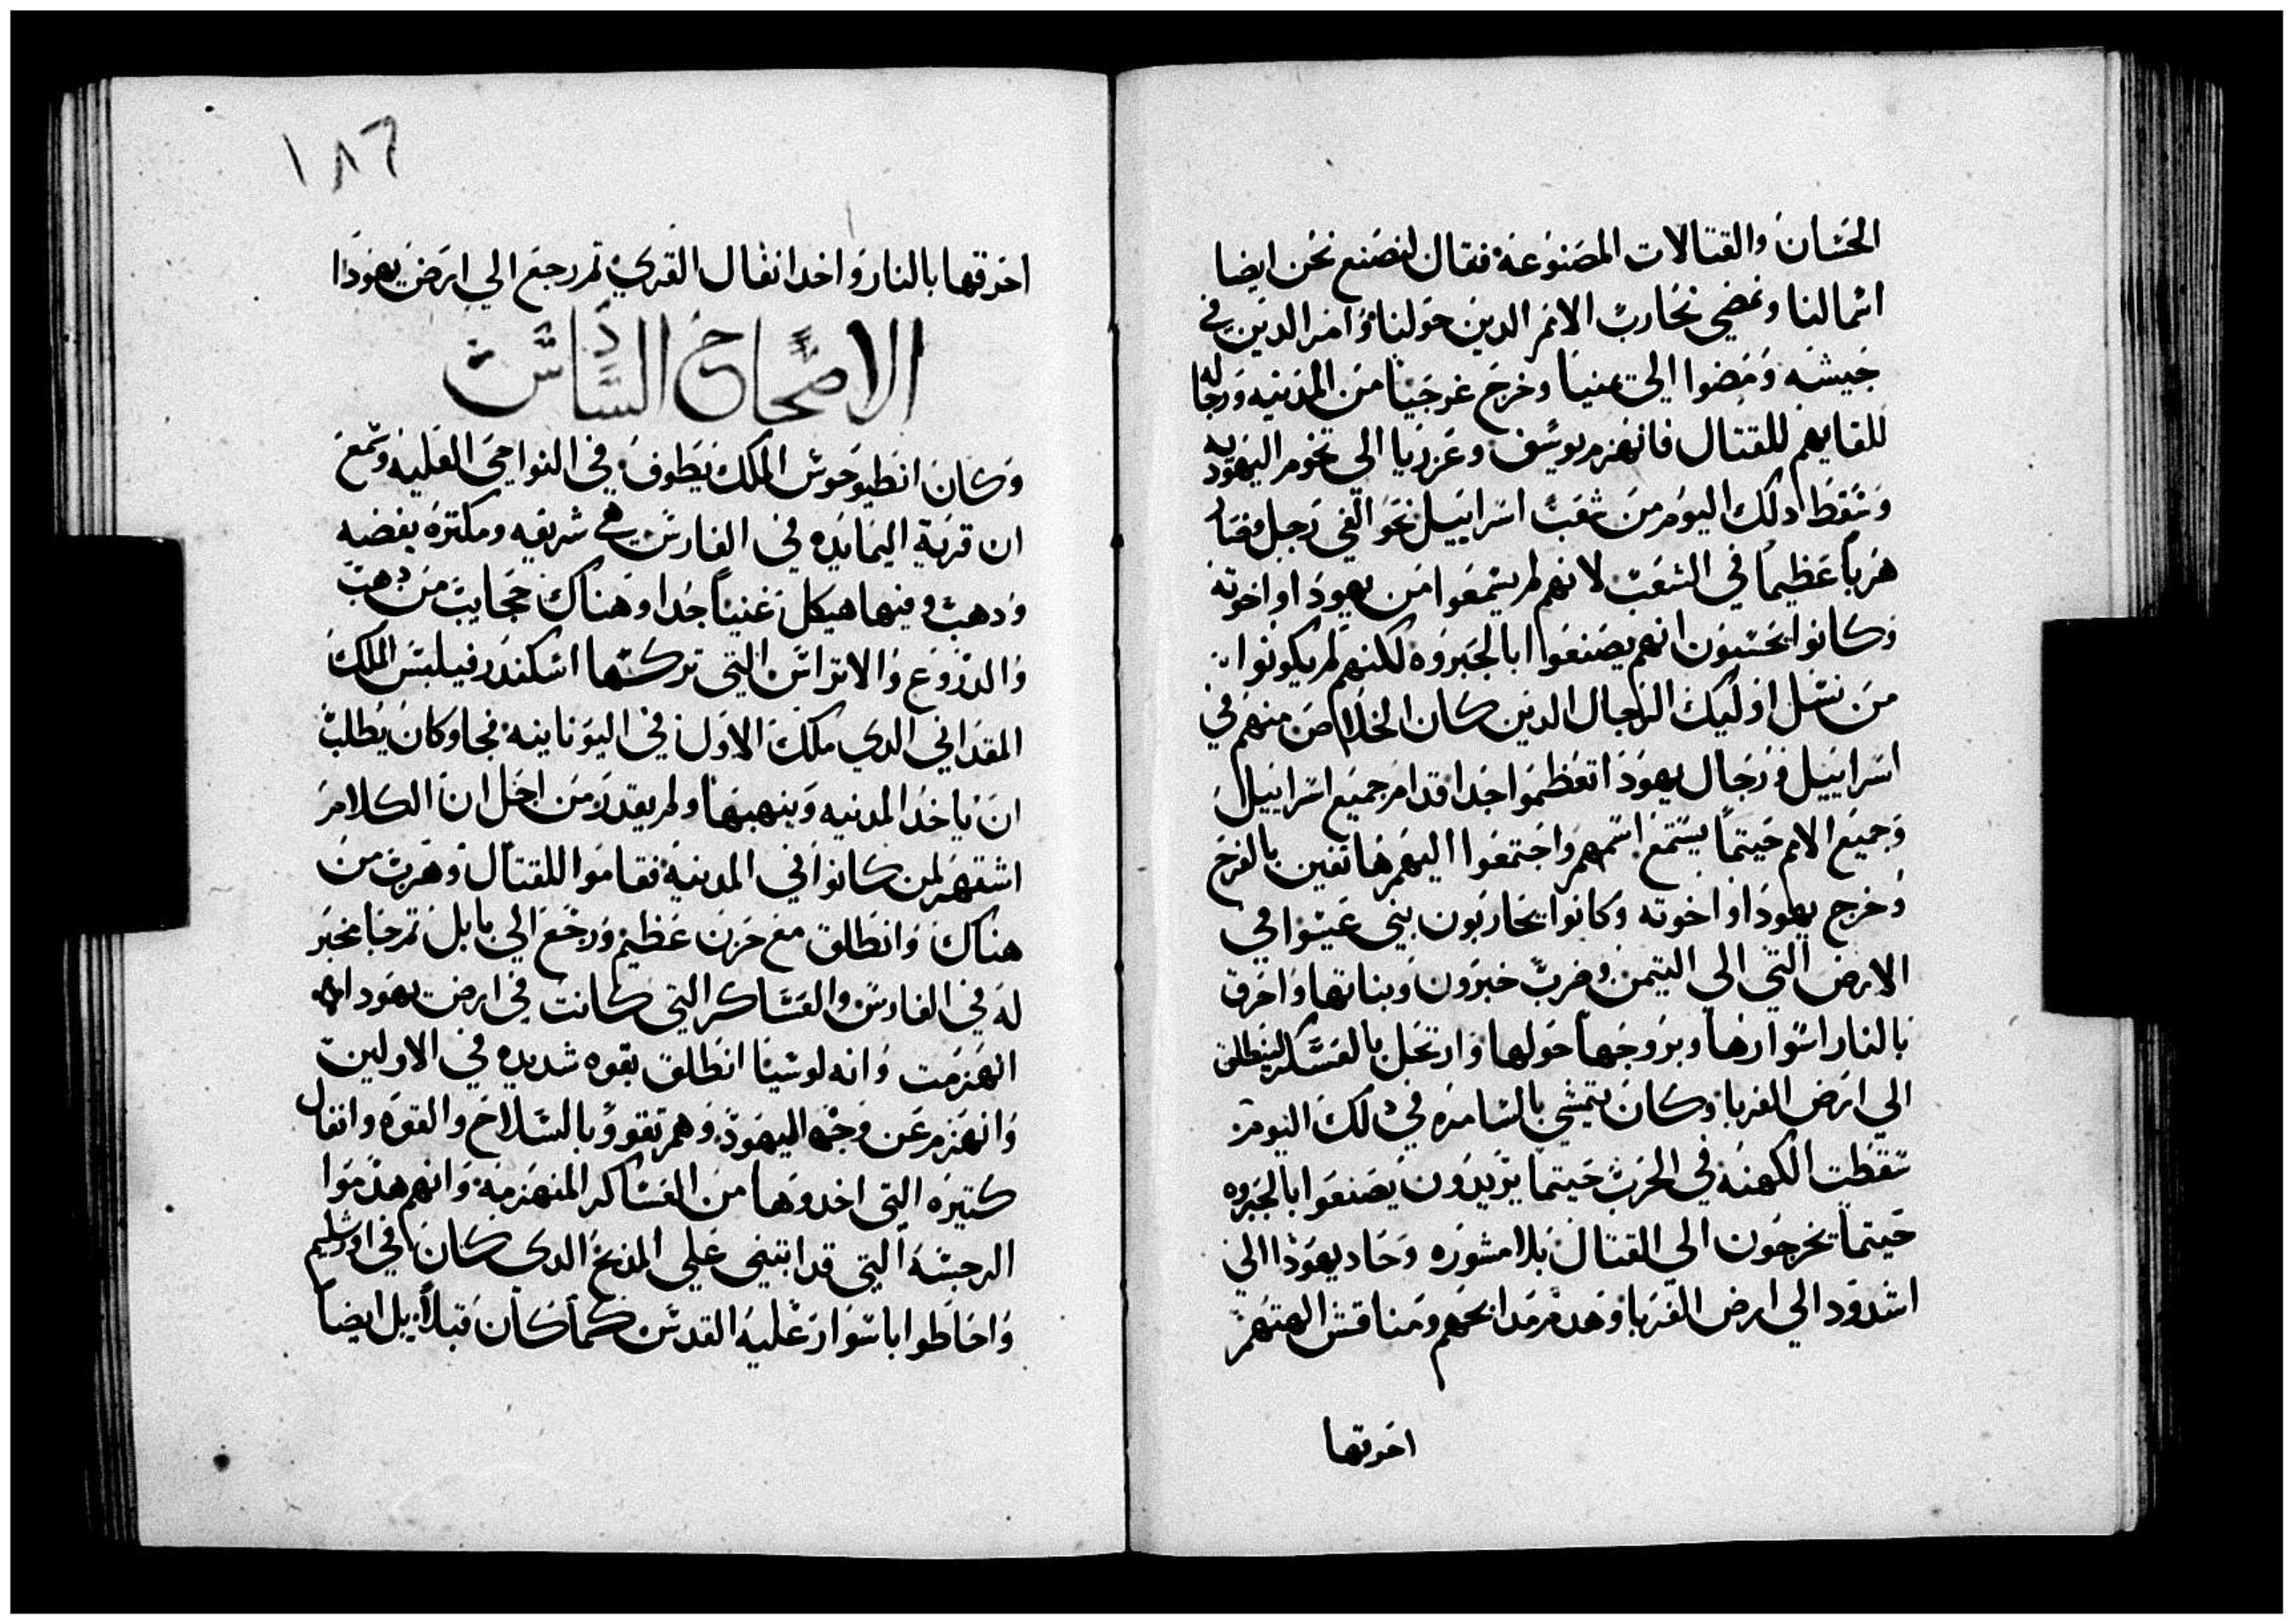 الحسان والقتالات المصنوعه فقال لنصنع نحن ايضا
اسمالنا ونمضي نحارب الامم الدين حولنا وامر الدين في
جيشه ومضوا الي يمنيا وخرج غورجيا من المدينه ورجاله
للقايهم للقتال فانهزم يوسف وعزريا الي تخوم اليهوديه
وسقط دلك اليوم من شعب اسراييل نحو الفي رجل وصار
هربا عظيما في الشعب لانهم لم يسمعوا من يهودا واخوته
وكانوا يحسبون انهم يصنعوا بالجبروه لكنهم لم يكونوا
من نسل اوليك الرجال الدين كان الخلاص منهم في
اسراييل ورجال يهودا تعظموا جدا قدام جميع اسراييل
وجميع الامم حيتما يستمع اسمهم واجتمعوا اليهم هاتفين بالفرح
وخرج يهودا واخوته وكانوا يحاربون بني عيسوا في
الارض التي الي التيمن وضرب خبرون وبناتها واحرق
بالنار اسوارها وبروجها حولها وارتحل بالعسكر لينطلق
الي ارض الغربا وكان يتمشي بالسامره في دلك اليوم
سقطت الكهنه في الحرب حيتما يريدون يصنعوا بالجبروه
حيتما يخرجون الي القتال بلا مشوره وحاد يهودا الي
اشدود الي ارض الغربا وهدم مدابحهم ومناقش الهتهم
احرقها
١٨٦
احرقها بالنار واخد انفال القري تم رجع الي ارض يهودا
الاصحاح السادس
وكان انطيوخوس الملك يطوف في النواحي العليه وسمع
ان قرية اليمايده في الفارس هي شريفه ومكتره بفضه
ودهب وفيها هيكل غنيا جدا وهناك حجايب من دهب
والدروع والاتراس التي تركها اسكندر فيلبس الملك
المقداني الدي ملك الاول في اليونانيه فجا وكان يطلب
ان ياخد المدينه وينهبها ولم يقدر من اجل ان الكلام
اشتهر لمن كانوا في المدينه فقاموا للقتال وهرب من
هناك وانطلق مع حزن عظيم ورجع الي بابل تم جا مخبر
له في الفارس والعساكر التي كانت في ارض يهودا
انهزمت وانه لوسيا انطلق بقوه شديده في الاولين
وانهزم عن وجه اليهود وهم تقووا بالسلاح والقوه وانفال
كتيره التي اخدوها من العساكر المنهزمه وانهم هدموا
الرجسه التي قد ابتني علي المدبح الدي كان في اورشليم
واحاطوا باسوار عليه القدس كما كان قبلا بل ايضا